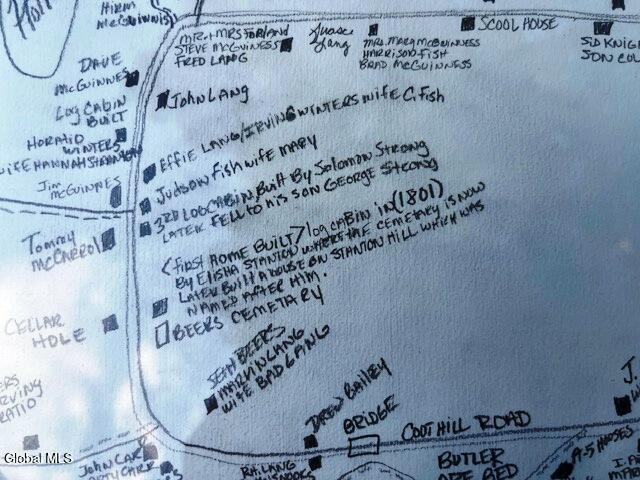 HIRAM
McGUINNIS
MR. + MRS FARLAND
STEVE McGUINESS
FRED LANG
Lang
MRS. MARY McGUINNESS
HARRISON FISH
BRAD McGUINNESS
SCOOL HOUSE
SID KNIG
JON COL
DAVE
McGUINNES
LOG CABIN
BUILT
HORATIO
WINTERS
WIFE HANNAH
JIM
McGUINNES
JOHN LANG
EFFIE LANG/IRVING WINTERS WIFE C. FISH
JUDSON FISH WIFE MARY
3RD LOG CABIN BUILT BY SOLOMON STRONG
LATER FELL TO HIS SON GEORGE STRONG
TOMMY
McCARROL
(FIRST HOME BUILT) LOG CABIN IN (1801)
BY ELISHA STANTON WHERE THE CEMETARY IS NOW
LATER BUILT A HOUSE ON STANTON HILL WHICH WAS
NAMED AFTER HIM.
BEERS CEMETARY
CELLAR
HOLE
SETH BEERS
MARVIN LANG
WIFE BAD GANG
ERS
RVING
RATIO
DREW BAILEY
BRIDGE
COOT HILL ROAD
J.
W
JOHN CARR
ARTY CARR
RH. LANG
BUTLER
ORE BED
A-S HOUSES
I-A
MAR
Global MLS